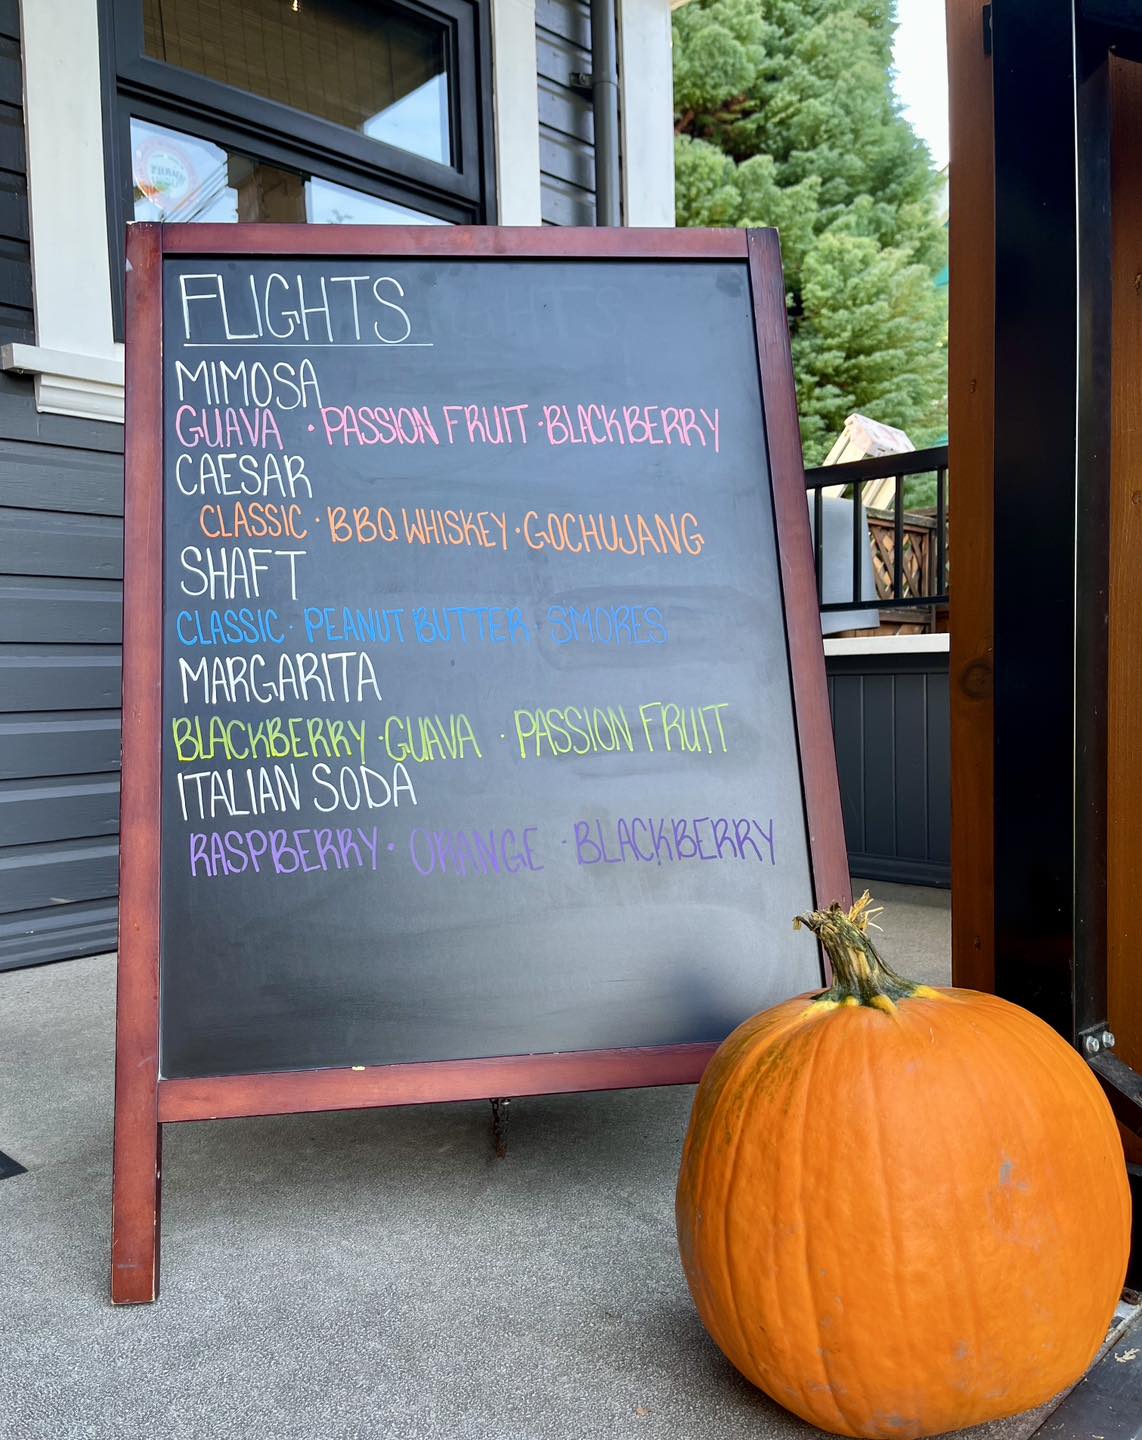 FLIGHTS
MIMOSA
GUAVA · PASSION FRUIT · BLACKBERRY
CAESAR
CLASSIC · BBQ WHISKEY · GOCHUJANG
SHAFT
CLASSIC · PEANUT BUTTER SMORES
MARGARITA
BLACKBERRY · GUAVA · PASSION FRUIT
ITALIAN SODA
RASPBERRY · ORANGE · BLACKBERRY